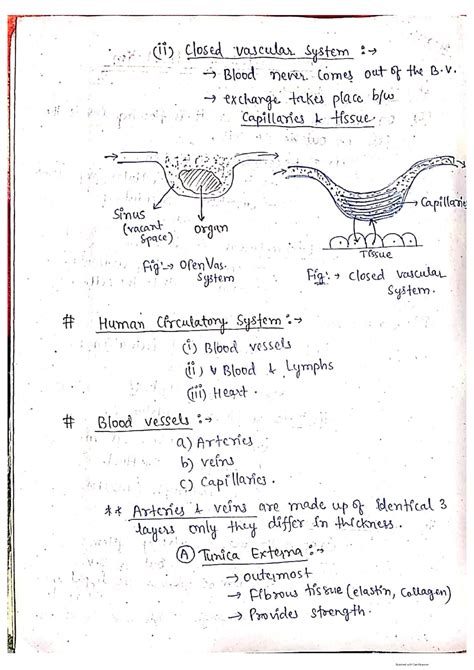 (ii) Closed vascular System :→
→ Blood never Comes out of the B.V.
→ exchange takes place b/w
Capillaries & tissue.
Sinus
(vacant
Space)
organ
Fig:→ Open Vas.
System
→ Capillaries
Tissue
Fig: → Closed vascular
System.
# Human Circulatory System :→
(i) Blood vessels
(ii) Blood & Lymphs
(iii) Heart.
# Blood vessels :→
a) Arteries
b) veins
c) Capillaries.
** Arteries & veins are made up of identical 3
layers only they differ in thickness.
(A) Tunica Externa :→
→ outermost
→ Fibrous tissue (elastin, collagen)
→ Provides strength.